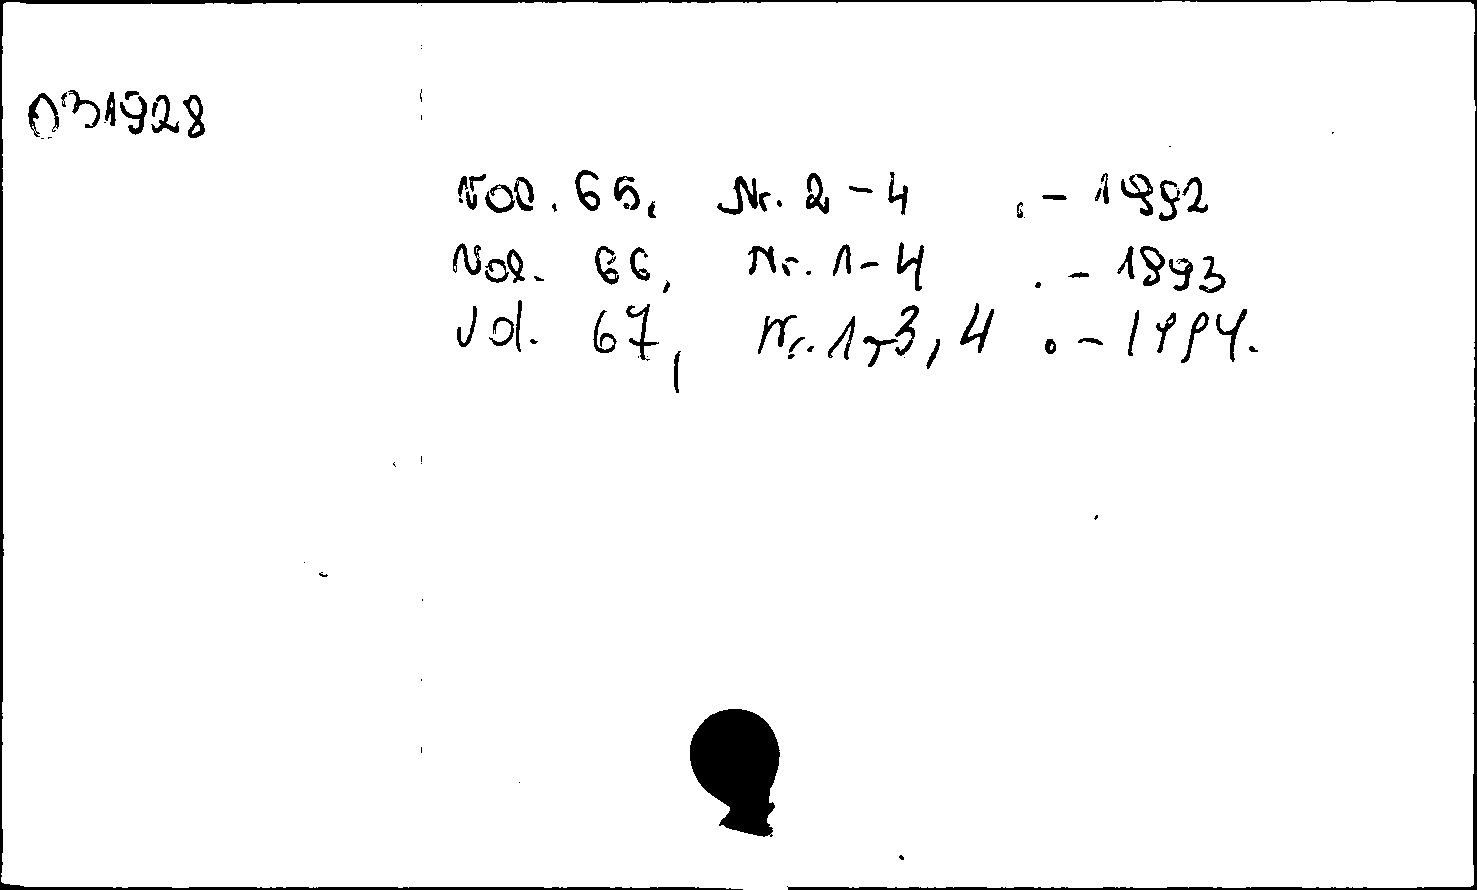 031928
Vol. 65, Nr. 2-4 . - 1992
Vol. 66, Nr. 1-4 . - 1993
Vol. 67, Nr. 1-3, 4 . - 1994.